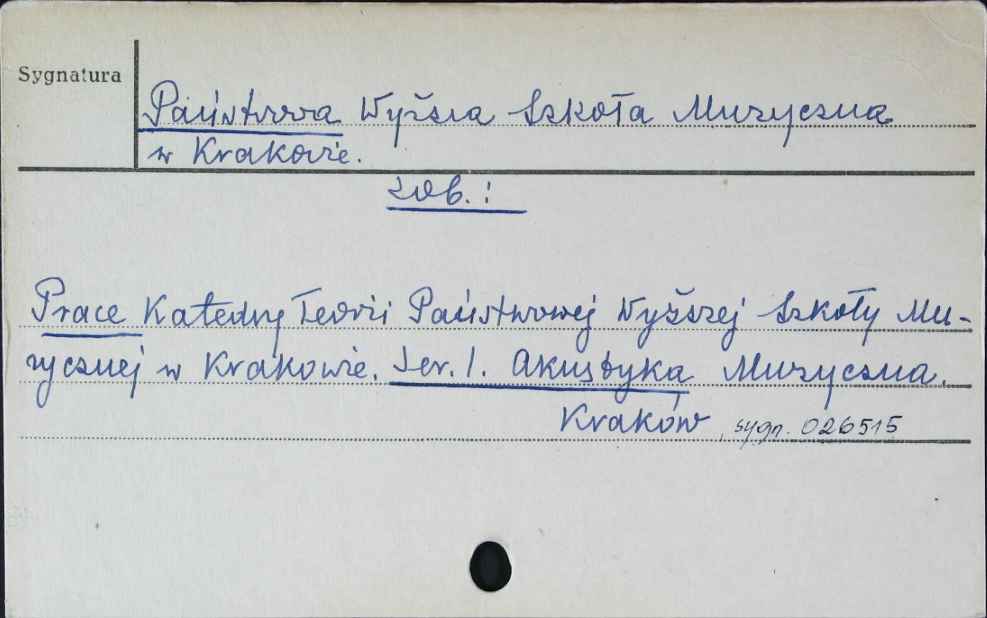 Sygnatura
Państwowa Wyższa Szkoła Muzyczna
w Krakowie.
zob. :
Prace Katedry Teorii Państwowej Wyższej Szkoły Mu-
zycznej w Krakowie. Ser. 1. Akustyka Muzyczna.
Kraków, sygn. 026515